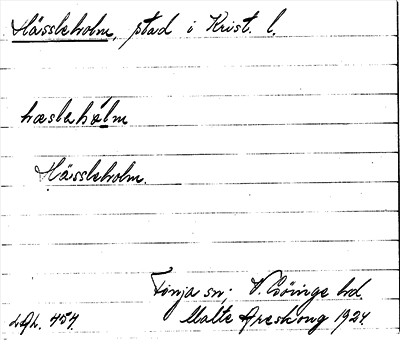 Hässleholm, stad i Krist. l.
hæslehálm
Hässleholm.
Finja sn; V. Göinge hd.
Malte Areskoug 1924.